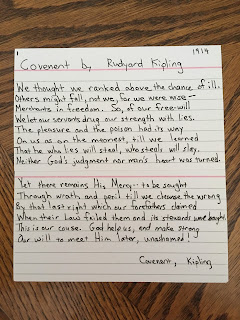 1 1914
Covenent by Rudyard Kipling
We thought we ranked above the chance of ill.
Others might fall, not we, for we were wise—
Merchants in freedom. So, of our free-will
We let our servants drug our strength with lies.
The pleasure and the poison had its way
On us as on the meanest, till we learned
That he who lies will steal, who steals will slay.
Neither God's judgment nor man's heart was turned.
Yet there remains His Mercy—to be sought
Through wrath and peril till we cleanse the wrong
By that last right which our forefathers claimed
When their Law failed them and its stewards were bought.
This is our cause. God help us, and make strong
Our will to meet Him later, unashamed!
Covenant, Kipling